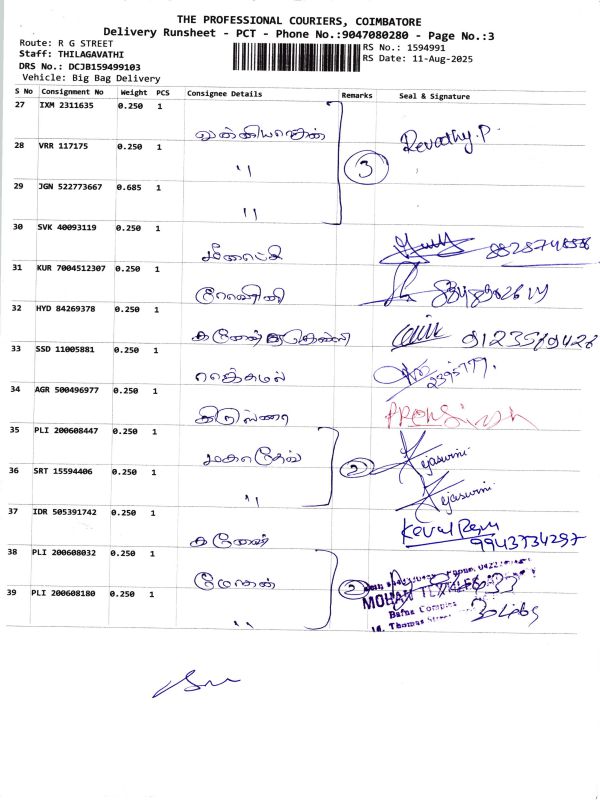 THE PROFESSIONAL COURIERS, COIMBATORE
Delivery Runsheet - PCT - Phone No.:9047080280 - Page No.:3
Route: R G STREET
RS No.: 1594991
Staff: THILAGAVATHI
RS Date: 11-Aug-2025
DRS No.: DCJB159499103
Vehicle: Big Bag Delivery
S No Consignment No Weight PCS Consignee Details Remarks Seal & Signature
27 IXM 2311635 0.250 1
Revathy.P.
28 VRR 117175 0.250 1
"
3
29 JGN 522773667 0.685 1
"
30 SVK 40093119 0.250 1
மீனாட்சி
31 KUR 7004512307 0.250 1
ரோஹிணி
32 HYD 84269378 0.250 1
33 SSD 11005881 0.250 1
34 AGR 500496977 0.250 1
35 PLI 200608447 0.250 1
மகாதேவ்
2
Tejaswini
36 SRT 15594406 0.250 1
"
Tejaswini
37 IDR 505391742 0.250 1
Keval Ram
9943734297
38 PLI 200608032 0.250 1
மோகன்
2
MOHAN TEXTILES
39 PLI 200608180 0.250 1
"
Bafna Complex
Thomas Street